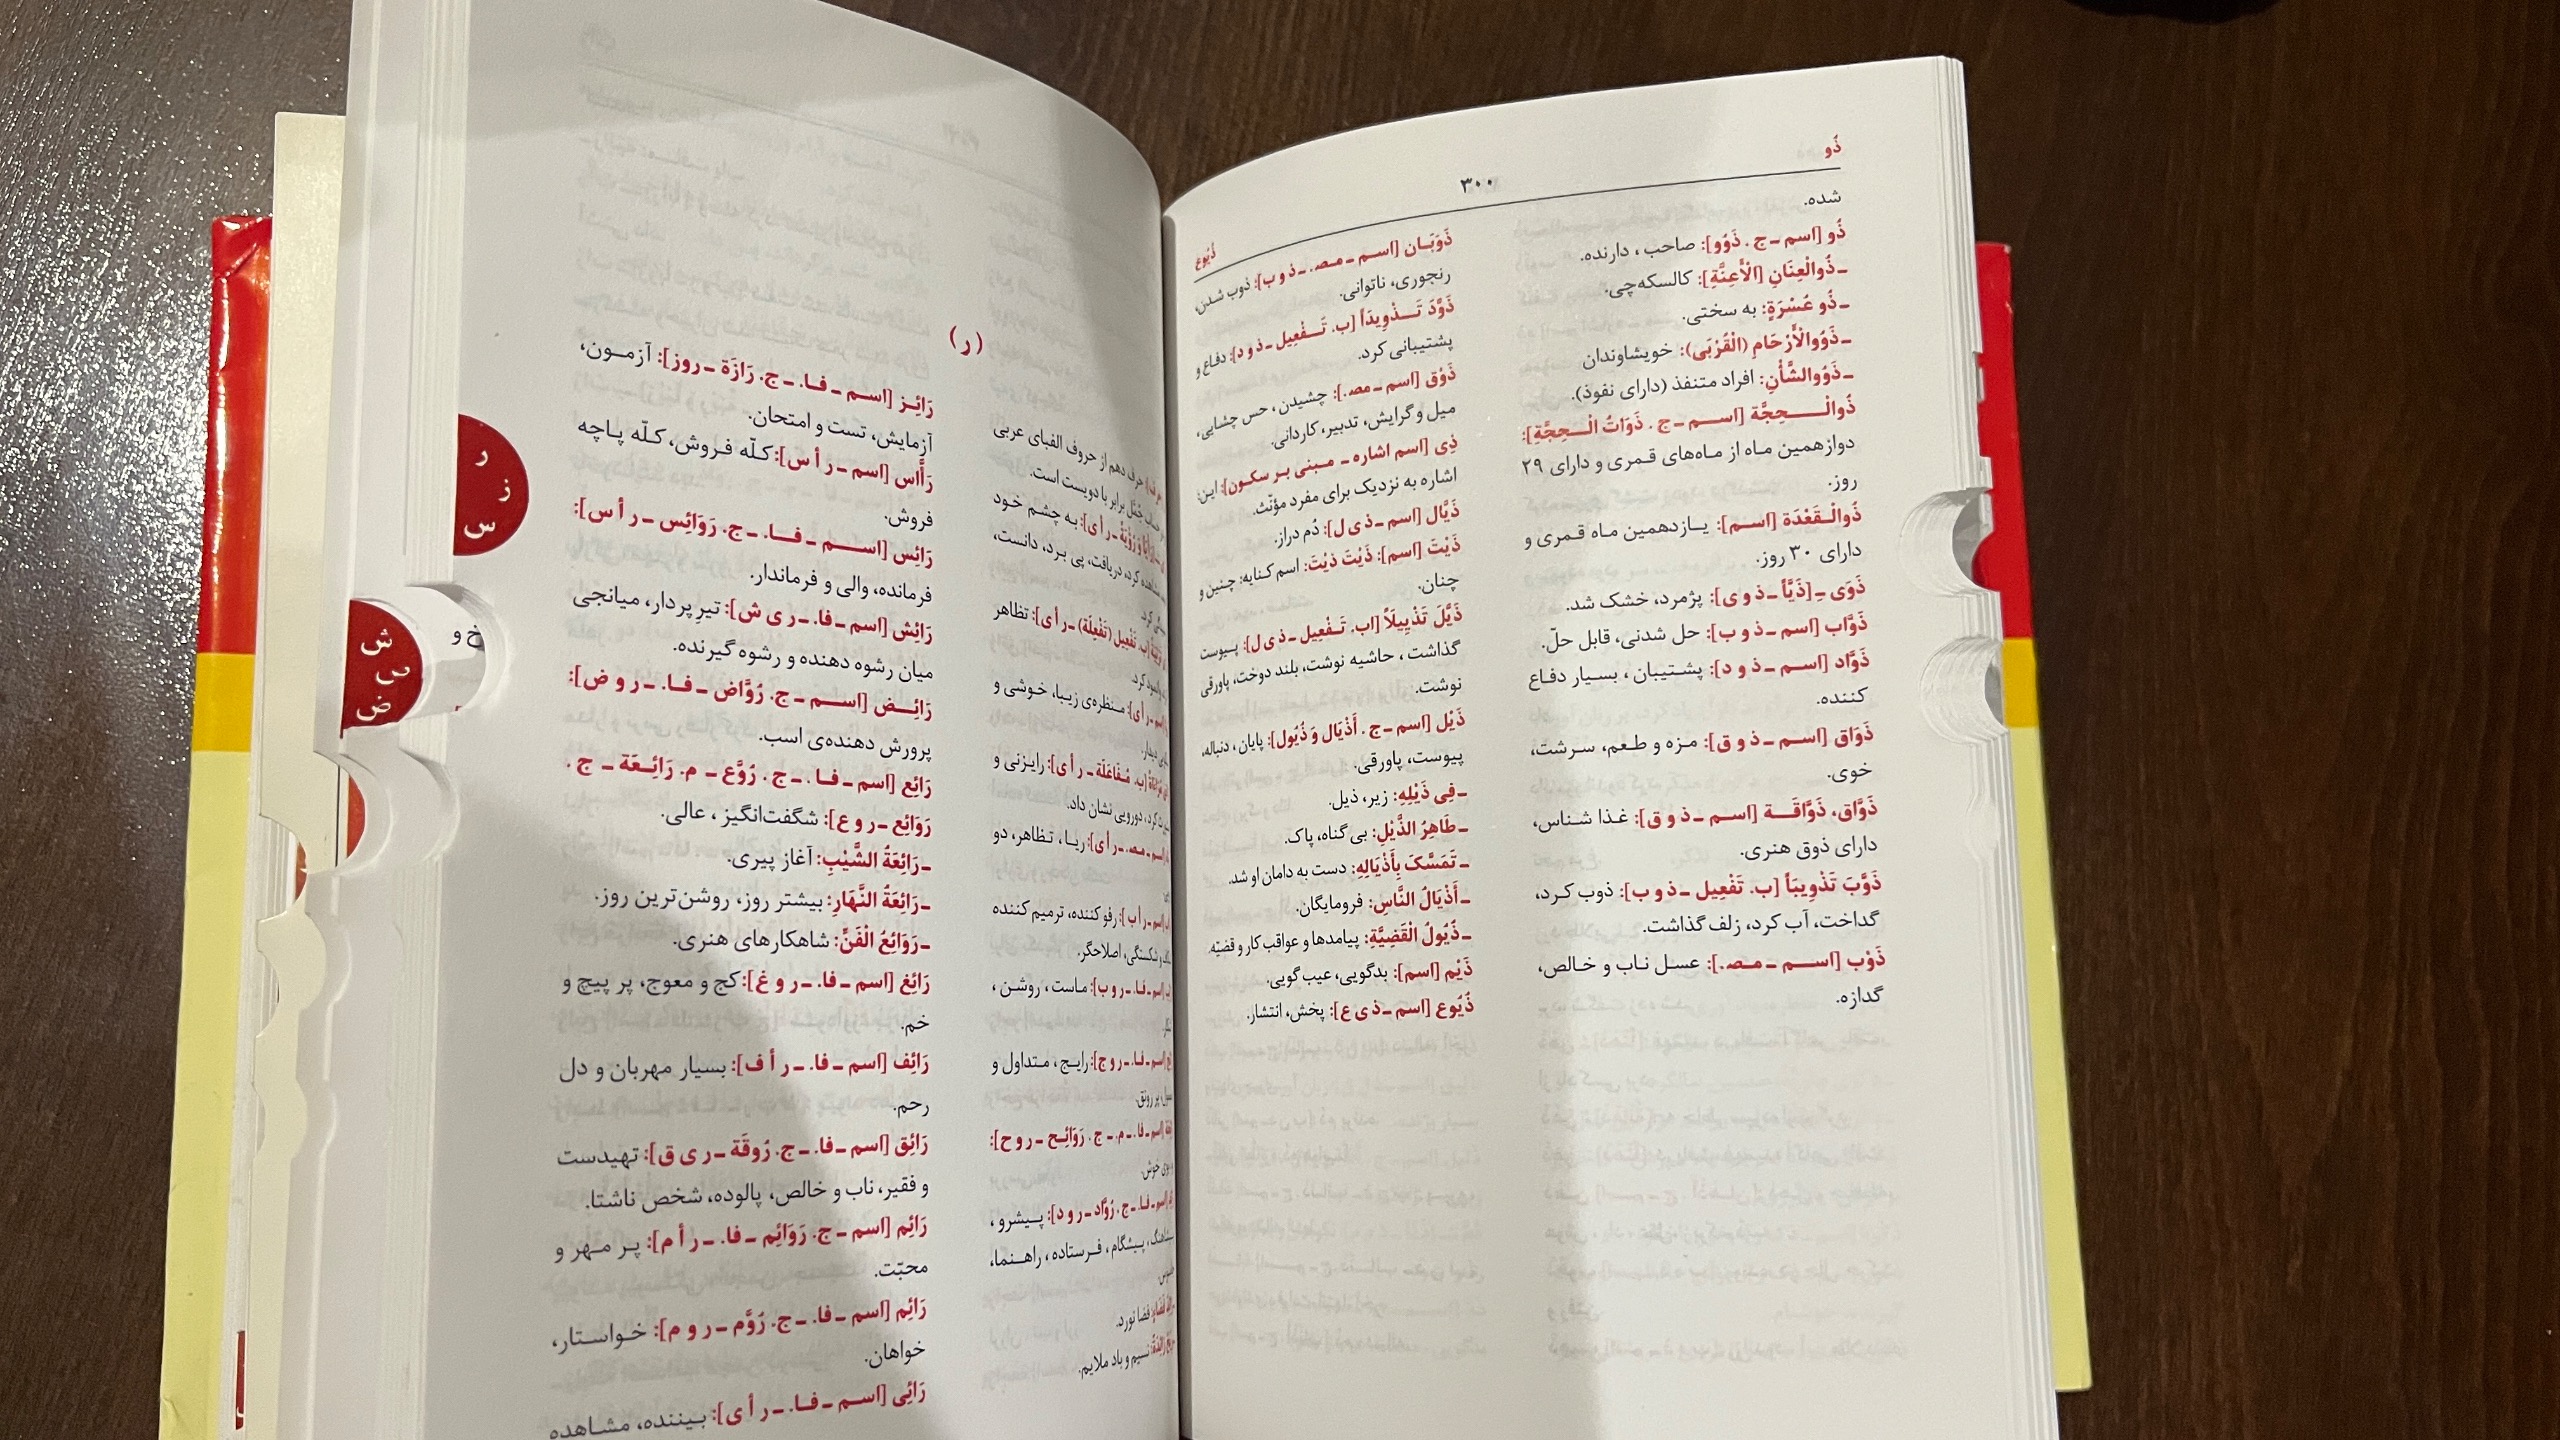 ذُو
۳۰۰
ذُیُوع
شده.
ذُو [اسم ـ ج . ذَوُو]: صاحب ، دارنده.
ـ ذُوالْعِنَانِ [الْأَعِنَّةِ]: کالسکه‌چی.
ـ ذُو عُسْرَةٍ: به سختی.
ـ ذَوُوالْأَرْحَامِ (الْقُرْبَی): خویشاوندان
ـ ذَوُوالشَّأْنِ: افراد متنفذ (دارای نفوذ).
ذُوالْحِجَّة [اسم ـ ج . ذَوَاتُ الْحِجَّةِ]:
دوازهمین ماه از ماه‌های قمری و دارای ۲۹
روز.
ذُوالْقَعْدَة [اسم]: یازدهمین ماه قمری و
دارای ۳۰ روز.
ذَوَی ـِ [ذَیّاً ـ ذ و ی]: پژمرد، خشک شد.
ذَوَّاب [اسم ـ ذ و ب]: حل شدنی، قابل حلّ.
ذَوَّاد [اسم ـ ذ و د]: پشتیبان ، بسیار دفاع
کننده.
ذَوَاق [اسم ـ ذ و ق]: مزه و طعم، سرشت،
خوی.
ذَوَّاق، ذَوَّاقَة [اسم ـ ذ و ق]: غذا شناس،
دارای ذوق هنری.
ذَوَّبَ تَذْوِیبَاً [ب. تَفْعِیل ـ ذ و ب]: ذوب کرد،
گداخت، آب کرد، زلف گذاشت.
ذَوْب [اسم ـ مصـ.]: عسل ناب و خالص،
گدازه.
ذَوَبَان [اسم ـ مصـ. ـ ذ و ب]: ذوب شدن،
رنجوری، ناتوانی.
ذَوَّدَ تَذْوِیدَاً [ب. تَفْعِیل ـ ذ و د]: دفاع و
پشتیبانی کرد.
ذَوْق [اسم ـ مصـ.]: چشیدن ، حس چشایی،
میل و گرایش، تدبیر، کاردانی.
ذِی [اسم اشاره ـ مبنی بر سکون]: این:
اشاره به نزدیک برای مفرد مؤنّث.
ذَیَّال [اسم ـ ذ ی ل]: دُم دراز.
ذَیْتَ [اسم]: ذَیْتَ ذیْتَ: اسم کنایه: چنین و
چنان.
ذَیَّلَ تَذْیِیلَاً [اب. تَفْعِیل ـ ذ ی ل]: پیوست
گذاشت ، حاشیه نوشت، بلند دوخت، پاورقی
نوشت.
ذَیْل [اسم ـ ج . أَذْیَال وَ ذُیُول]: پایان ، دنباله،
پیوست، پاورقی.
ـ فِی ذَیْلِهِ: زیر، ذیل.
ـ طَاهِرُ الذَّیْلِ: بی گناه، پاک.
ـ تَمَسَّکَ بِأَذْیَالِهِ: دست به دامان او شد.
ـ أَذْیَالُ النَّاسِ: فرومایگان.
ـ ذُیُولُ الْقَضِیَّةِ: پیامدها و عواقب کار و قضیّه.
ذَیْم [اسم]: بدگویی، عیب گویی.
ذُیُوع [اسم ـ ذ ی ع]: پخش، انتشار.
(ر)
حرف دهم از حروف الفبای عربی
جُمَّل برابر با دویست است.
رُؤْیَةً ـ ر أ ی]: به چشم خود
مشاهده کرد، دریافت، پی برد، دانست،
کرد.
تَفْعِیل (تَفْعِلَة) ـ ر أ ی]: تظاهر
وانمود کرد.
ـ ر أ ی]: منظره‌ی زیبا، خوشی و
دیدار.
[ب. مُفَاعَلَة ـ ر أ ی]: رایزنی و
کرد، دورویی نشان داد.
ـ ر أ ی]: ریا، تظاهر، دو
[اسم ـ ر أ ب]: رفو کننده، ترمیم کننده
شکستگی، اصلاحگر.
ـ فا. ـ ر و ب]: ماست ، روشن ،
[اسم ـ فا. ـ ر و ج]: رایج ، متداول و
پر رونق.
ـ فا. ـ م. ـ ج . رَوَائِح ـ ر و ح]:
بوی خوش.
ـ فا. ـ ج . رُوَّاد ـ ر و د]: پیشرو ،
پیشاهنگ ، پیشگام ، فرستاده ، راهنما،
فضا نورد.
نسیم و باد ملایم.
رَائِز [اسم ـ فا. ـ ج. رَازَة ـ روز]: آزمون،
آزمایش، تست و امتحان.
رَأَّاس [اسم ـ ر أ س]: کلّه فروش، کلّه پاچه
فروش.
رَائِس [اسم ـ فا. ـ ج. رَوَائِس ـ ر أ س]:
فرمانده، والی و فرماندار.
رَائِش [اسم ـ فا. ـ ر ی ش]: تیرِ پردار، میانجی
میان رشوه دهنده و رشوه گیرنده.
رَائِض [اسم ـ ج. رُوَّاض ـ فا. ـ ر و ض]:
پرورش دهنده‌ی اسب.
رَائِع [اسم ـ فا. ـ ج. رُوَّع ـ م. رَائِعَة ـ ج .
رَوَائِع ـ ر و ع]: شگفت‌انگیز ، عالی.
ـ رَائِعَةُ الشَّیْبِ: آغاز پیری.
ـ رَائِعَةُ النَّهَارِ: بیشتر روز، روشن‌ترین روز.
ـ رَوَائِعُ الْفَنِّ: شاهکارهای هنری.
رَائِغ [اسم ـ فا. ـ ر و غ]: کج و معوج، پر پیچ و
خم.
رَائِف [اسم ـ فا. ـ ر أ ف]: بسیار مهربان و دل
رحم.
رَائِق [اسم ـ فا. ـ ج. رُوقَة ـ ر ی ق]: تهیدست
و فقیر، ناب و خالص، پالوده، شخص ناشتا.
رَائِم [اسم ـ ج. رَوَائِم ـ فا. ـ ر أ م]: پر مهر و
محبّت.
رَائِم [اسم ـ فا. ـ ج. رُوَّم ـ ر و م]: خواستار،
خواهان.
رَائِی [اسم ـ فا. ـ ر أ ی]: بیننده، مشاهده
ر
ز
س
ش
ض
خ و